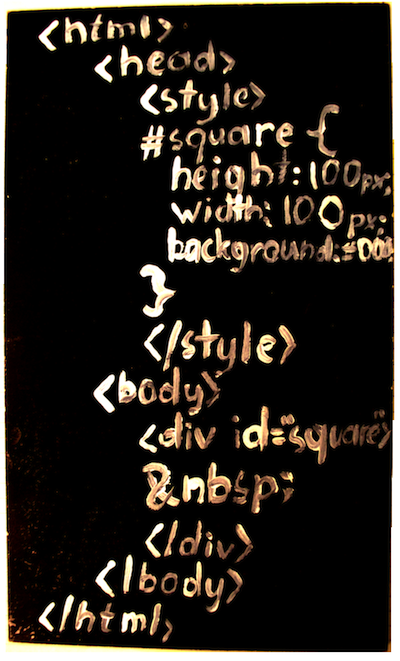 <html>
<head>
<style>
#square {
height: 100px;
width: 100px;
background:#000
}
</style>
<body>
<div id="square">
&nbsp;
</div>
</body>
</html>